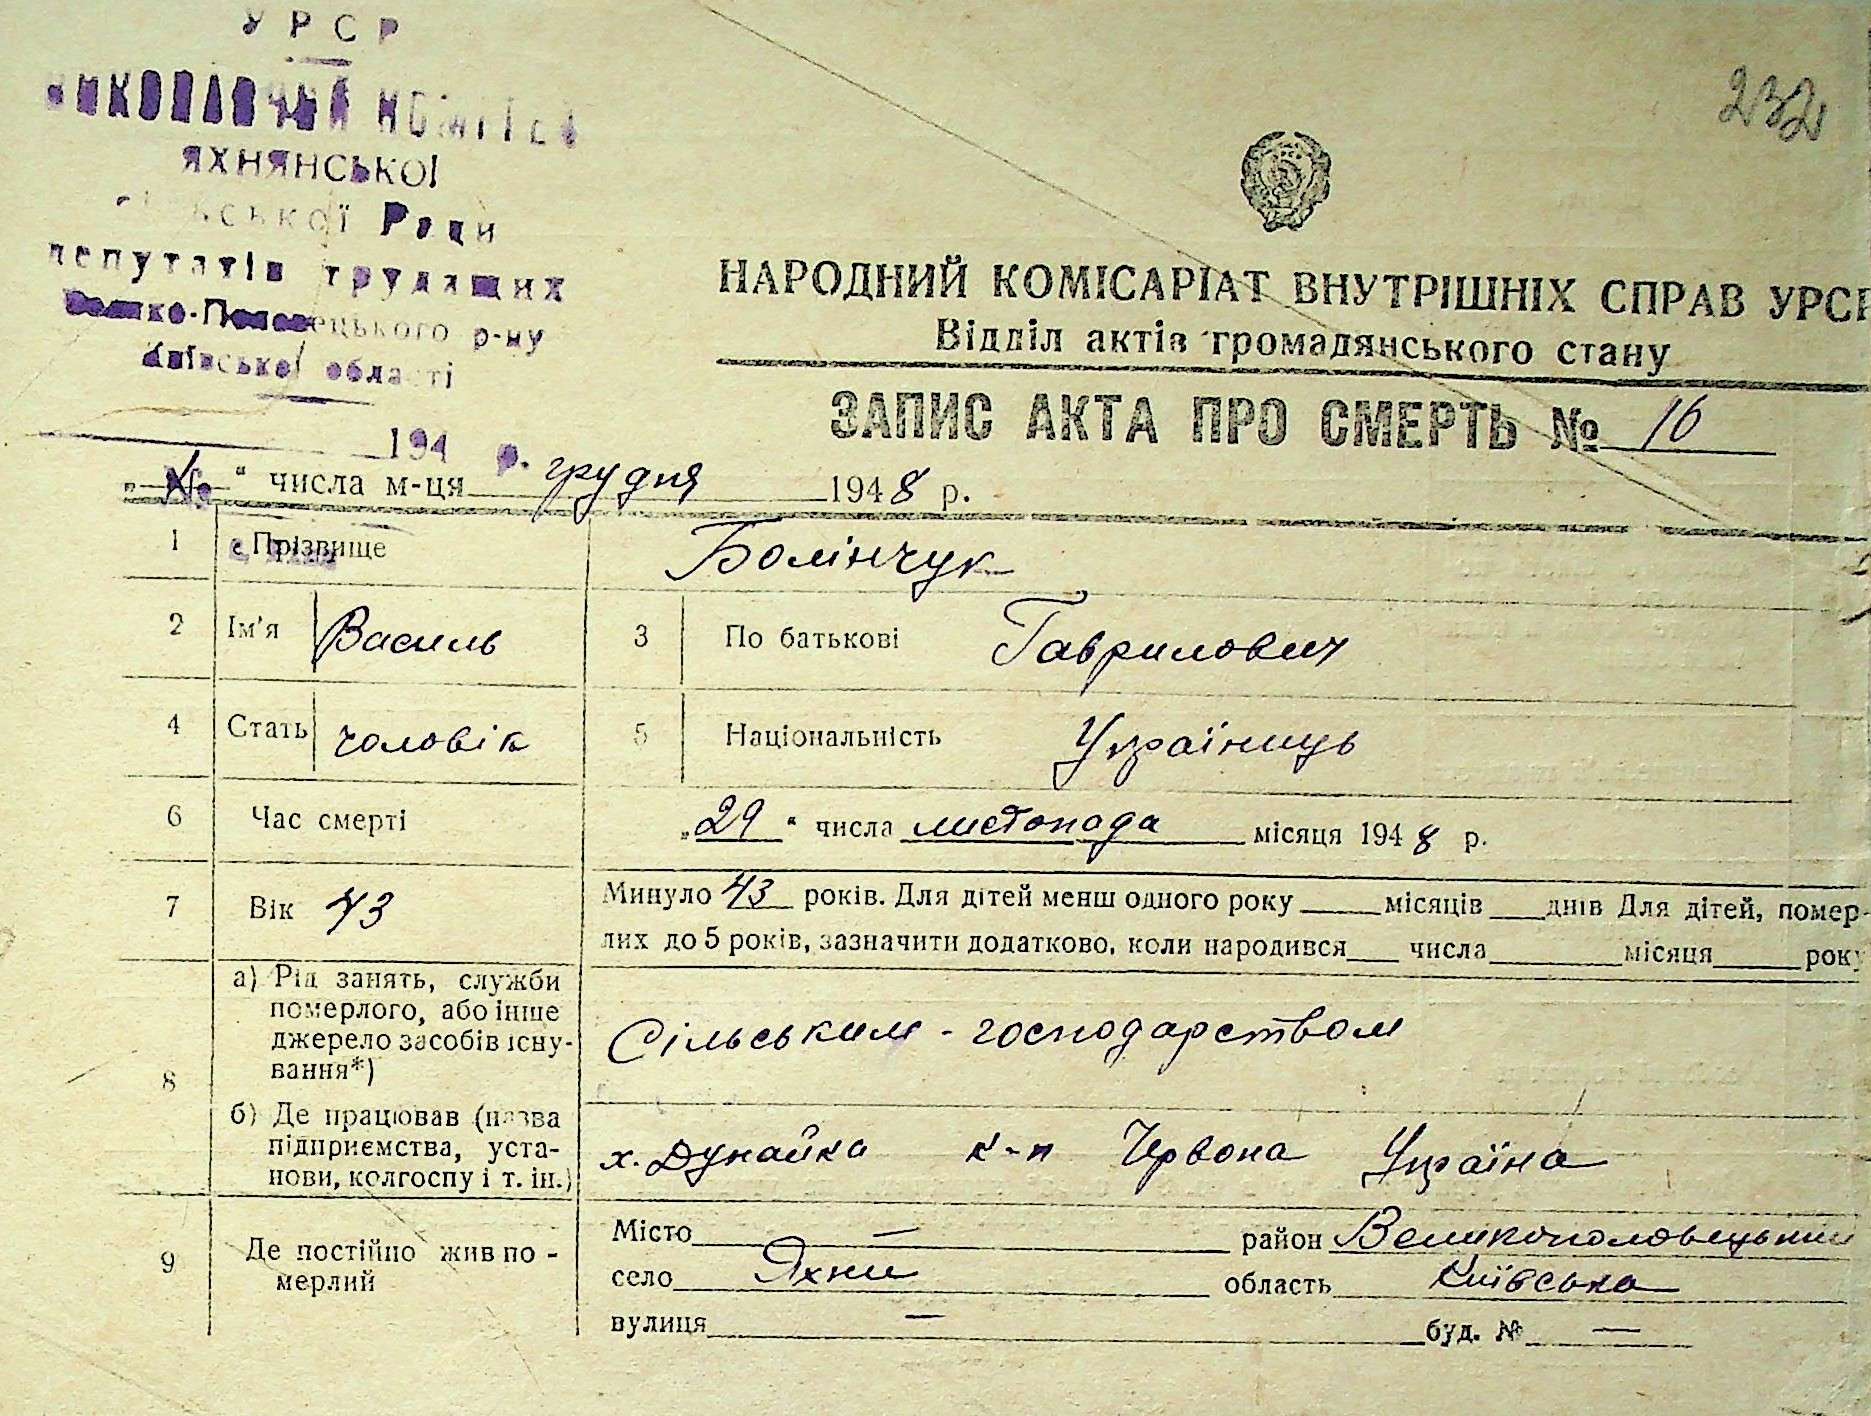 УРСР
ВИКОНАВЧИЙ КОМІТЕТ
ЯХНЯНСЬКОЇ
сільської Ради
депутатів трудящих
Велико-Половецького р-ну
Київської області
194 р.
№
с. Яхни
232
НАРОДНИЙ КОМІСАРІАТ ВНУТРІШНІХ СПРАВ УРСР
Відділ актів громадянського стану
ЗАПИС АКТА ПРО СМЕРТЬ № 16
„1“ числа м-ця грудня 1948 р.
1 Прізвище Болінчук
2 Ім'я Василь 3 По батькові Гаврилович
4 Стать чоловік 5 Національність Українець
6 Час смерті „29“ числа листопада місяця 1948 р.
7 Вік 43 Минуло 43 років. Для дітей менш одного року ___ місяців ___ днів Для дітей, помер-
лих до 5 років, зазначити додатково, коли народився ___ числа ___ місяця ___ року
8 а) Рід занять, служби
померлого, або інше
джерело засобів існу-
вання*)
Сільським - господарством
б) Де працював (назва
підприємства, уста-
нови, колгоспу і т. ін.)
х. Дунайка к-п Червона Україна
9 Де постійно жив по-
мерлий
Місто — район Великополовецький
село Яхни область Київська
вулиця — буд. № —